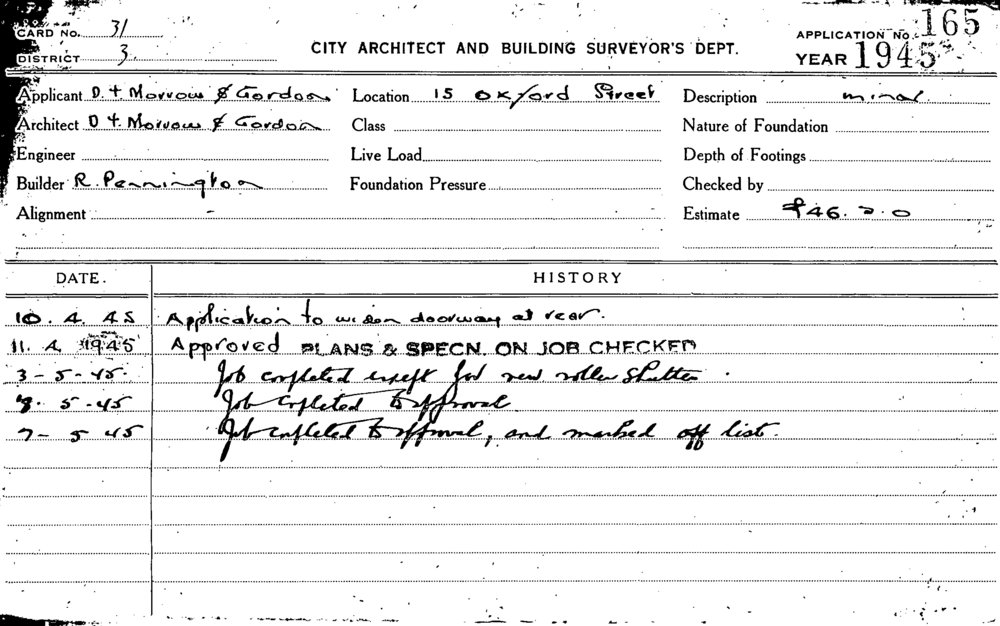 CARD NO. 31
DISTRICT 3
CITY ARCHITECT AND BUILDING SURVEYOR'S DEPT.
APPLICATION NO. 165
YEAR 1945
Applicant D. T. Morrow & Gordon Location 15 Oxford Street Description minor
Architect D T. Morrow & Gordon Class Nature of Foundation
Engineer Live Load Depth of Footings
Builder R. Pennington Foundation Pressure Checked by
Alignment - Estimate £46. 2. 0
DATE. HISTORY
10. 4. 45 Application to widen doorway at rear.
11. 4. 1945 Approved PLANS & SPECN. ON JOB CHECKED
3-5-45. Job completed except for new roller shutter.
5-45 Job completed to approval.
7-5 45 Job completed to approval, and marked off list.